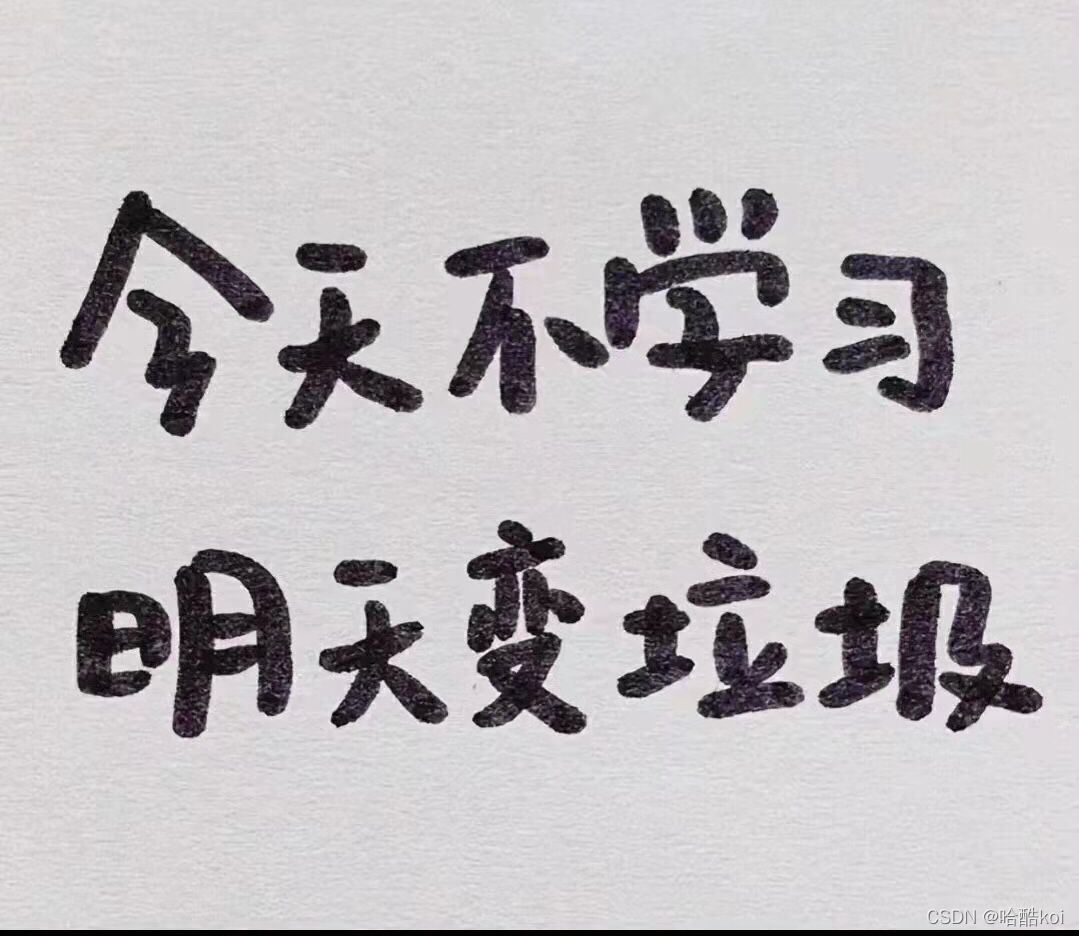 今天不学习
明天变垃圾
CSDN @哈酷koi